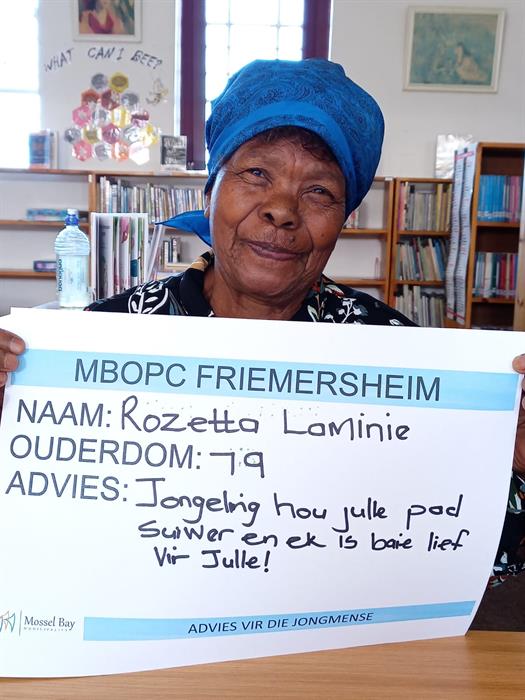 WHAT CAN I BEE?
MBOPC FRIEMERSHEIM
NAAM: Rozetta Laminie
OUDERDOM: 79
ADVIES: Jongeling hou julle pad
suiwer en ek is baie lief
Vir Julle!
Mossel Bay
MUNICIPALITY
ADVIES VIR DIE JONGMENSE